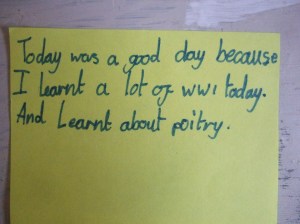 Today was a good day because
I learnt a lot of wwı today.
And Learnt about poitry.